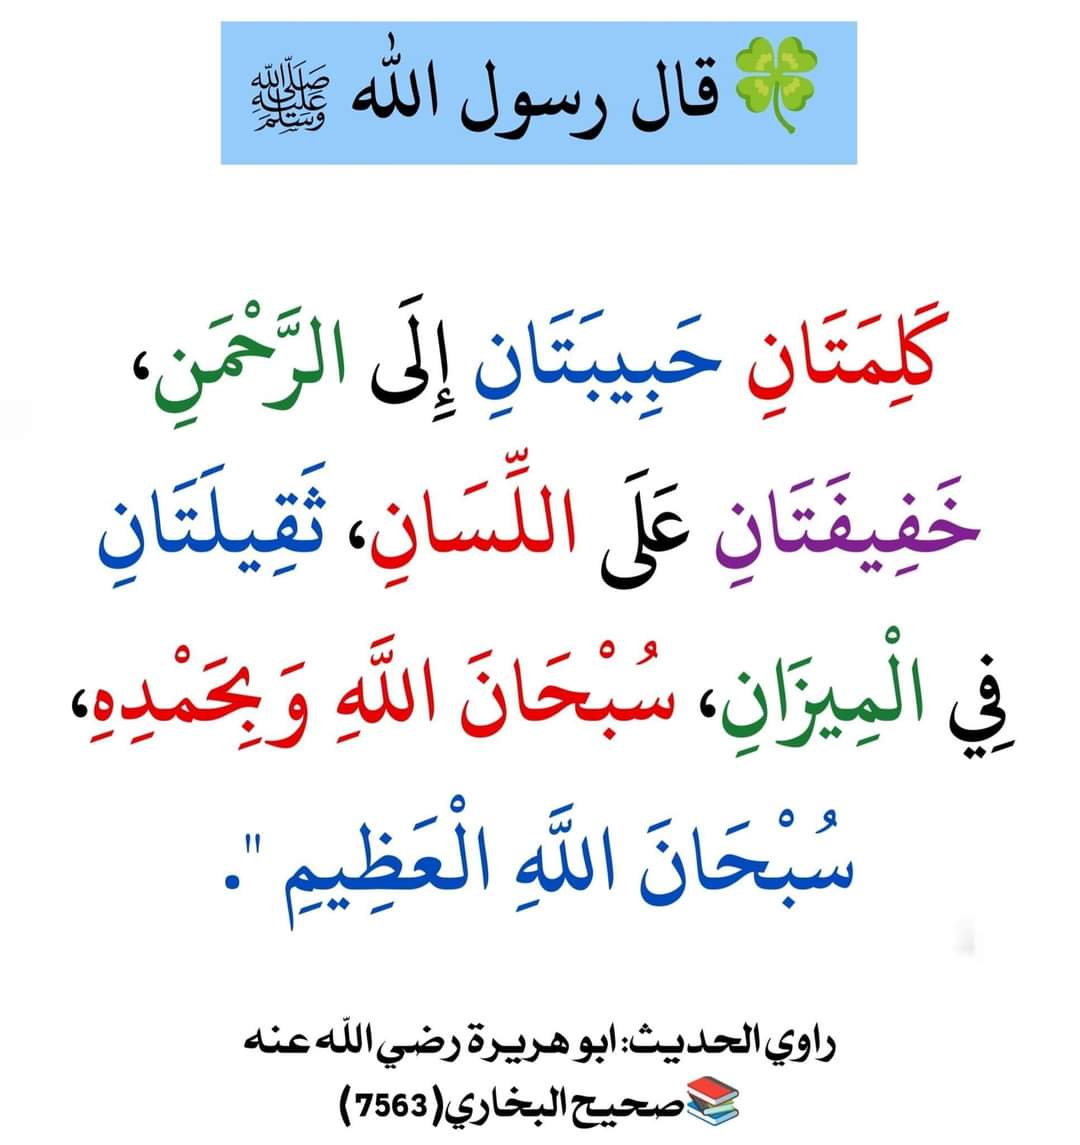 🍀قال رسول الله ﷺ
كَلِمَتَانِ حَبِيبَتَانِ إِلَى الرَّحْمَنِ،
خَفِيفَتَانِ عَلَى اللِّسَانِ، ثَقِيلَتَانِ
فِي الْمِيزَانِ، سُبْحَانَ اللَّهِ وَبِحَمْدِهِ،
سُبْحَانَ اللَّهِ الْعَظِيمِ ".
راوي الحديث: ابو هريرة رضي الله عنه
📚صحيح البخاري(7563)